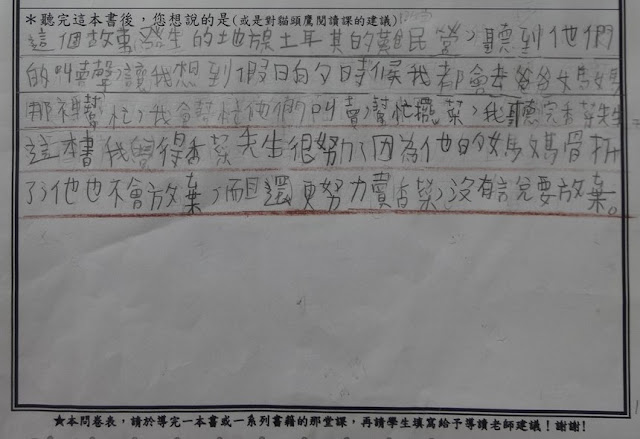 ＊聽完這本書後，您想說的是(或是對貓頭鷹閱讀課的建議)
這個故事發生的地點土耳其的難民營，聽到他們
的叫賣聲，讓我想到假日的時候我都會去爸爸媽媽
那裡幫忙，我會幫忙他們叫賣，幫忙擺菜，我聽完香菜先生
這本書我覺得香菜先生很努力，因為他的媽媽骨折
了，他也不會放棄，而且還更努力賣香菜，沒有說要放棄。
★本問卷表，請於導完一本書或一系列書籍的那堂課，再請學生填寫給予導讀老師建議！謝謝!